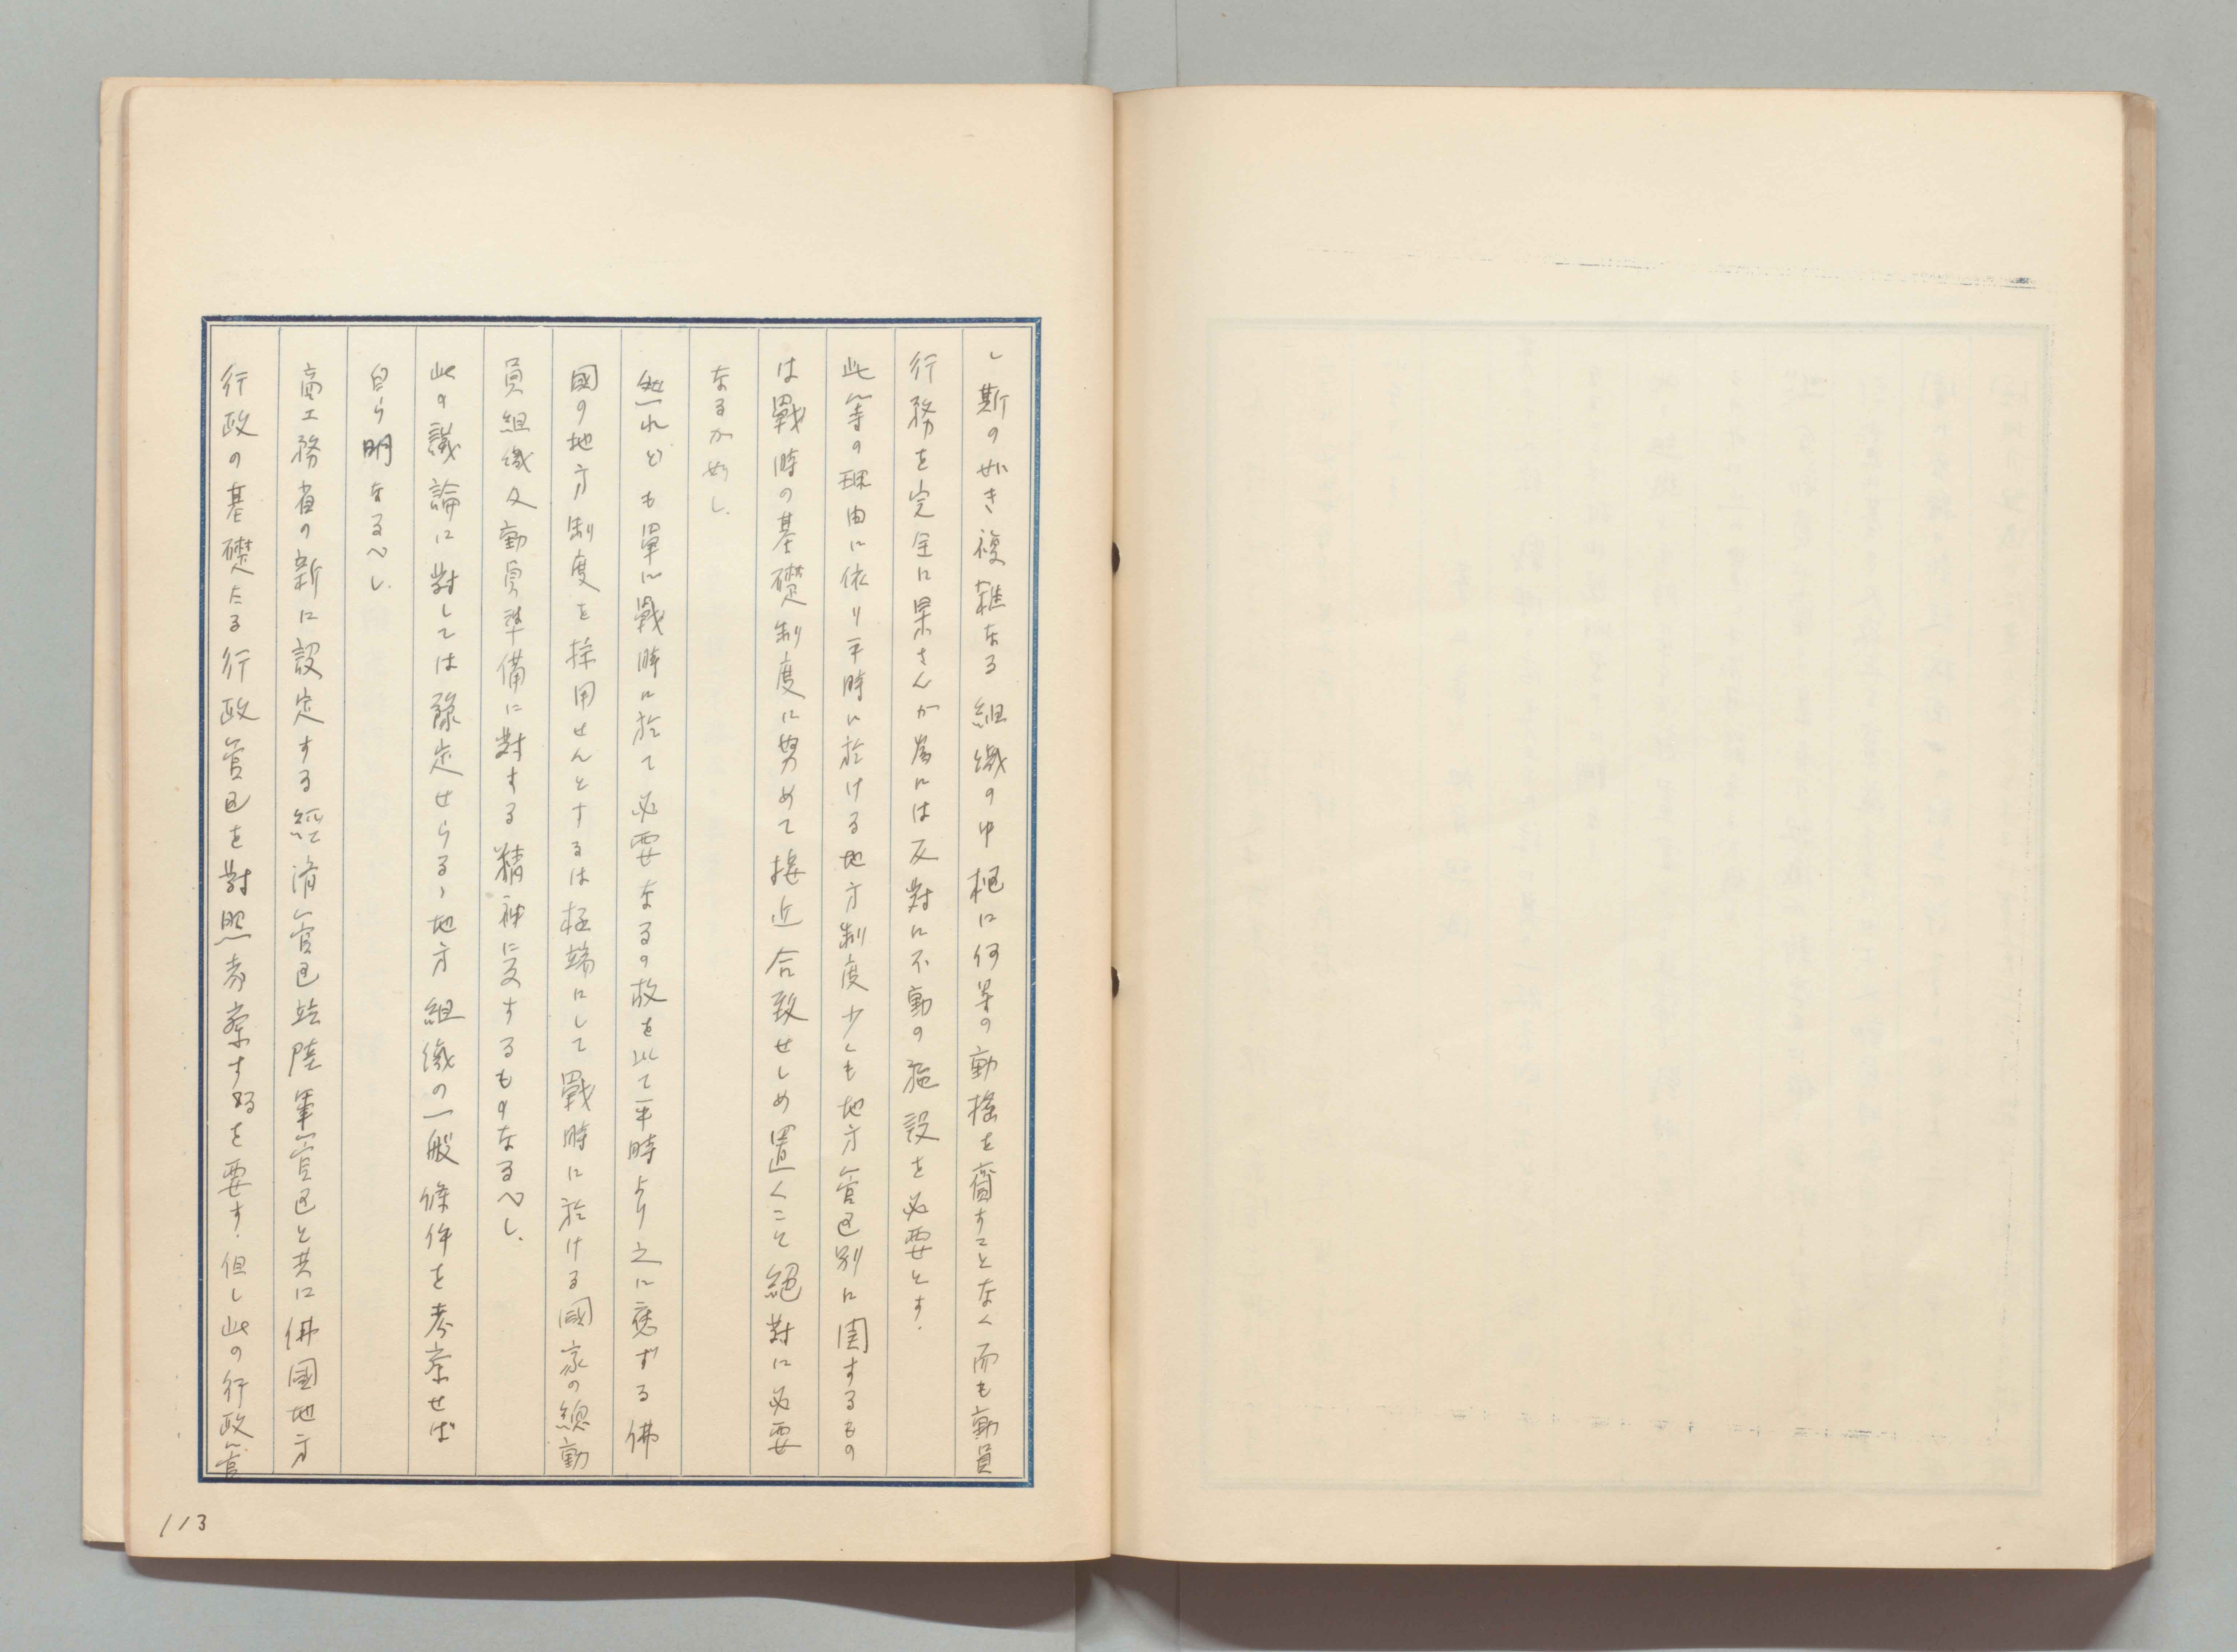 し斯の如き複雑なる組織の中枢に何等の動揺を齎すことなく而も動員
行務を完全に果さんが為には反対に不動の施設を必要とす.
此等の理由に依り平時に於ける地方制度少くも地方管区別に関するもの
は戰時の基礎制度に努めて接近合致せしめ置くこと絶対に必要
なるが如し.
然れども単に戰時に於て必要なるの故を以て平時より之に應ずる佛
國の地方制度を採用せんとするは極端にして戰時に於ける國家の總動
員組織又動員準備に対する精神に反するものなるべし.
此の議論に対しては豫定せらるゝ地方組織の一般條件を考察せば
自ら明なるべし.
商工務省の新に設定する経済管区竝陸軍管区と共に佛国地方
行政の基礎たる行政管区を対照考察するを要す.但し此の行政管
113